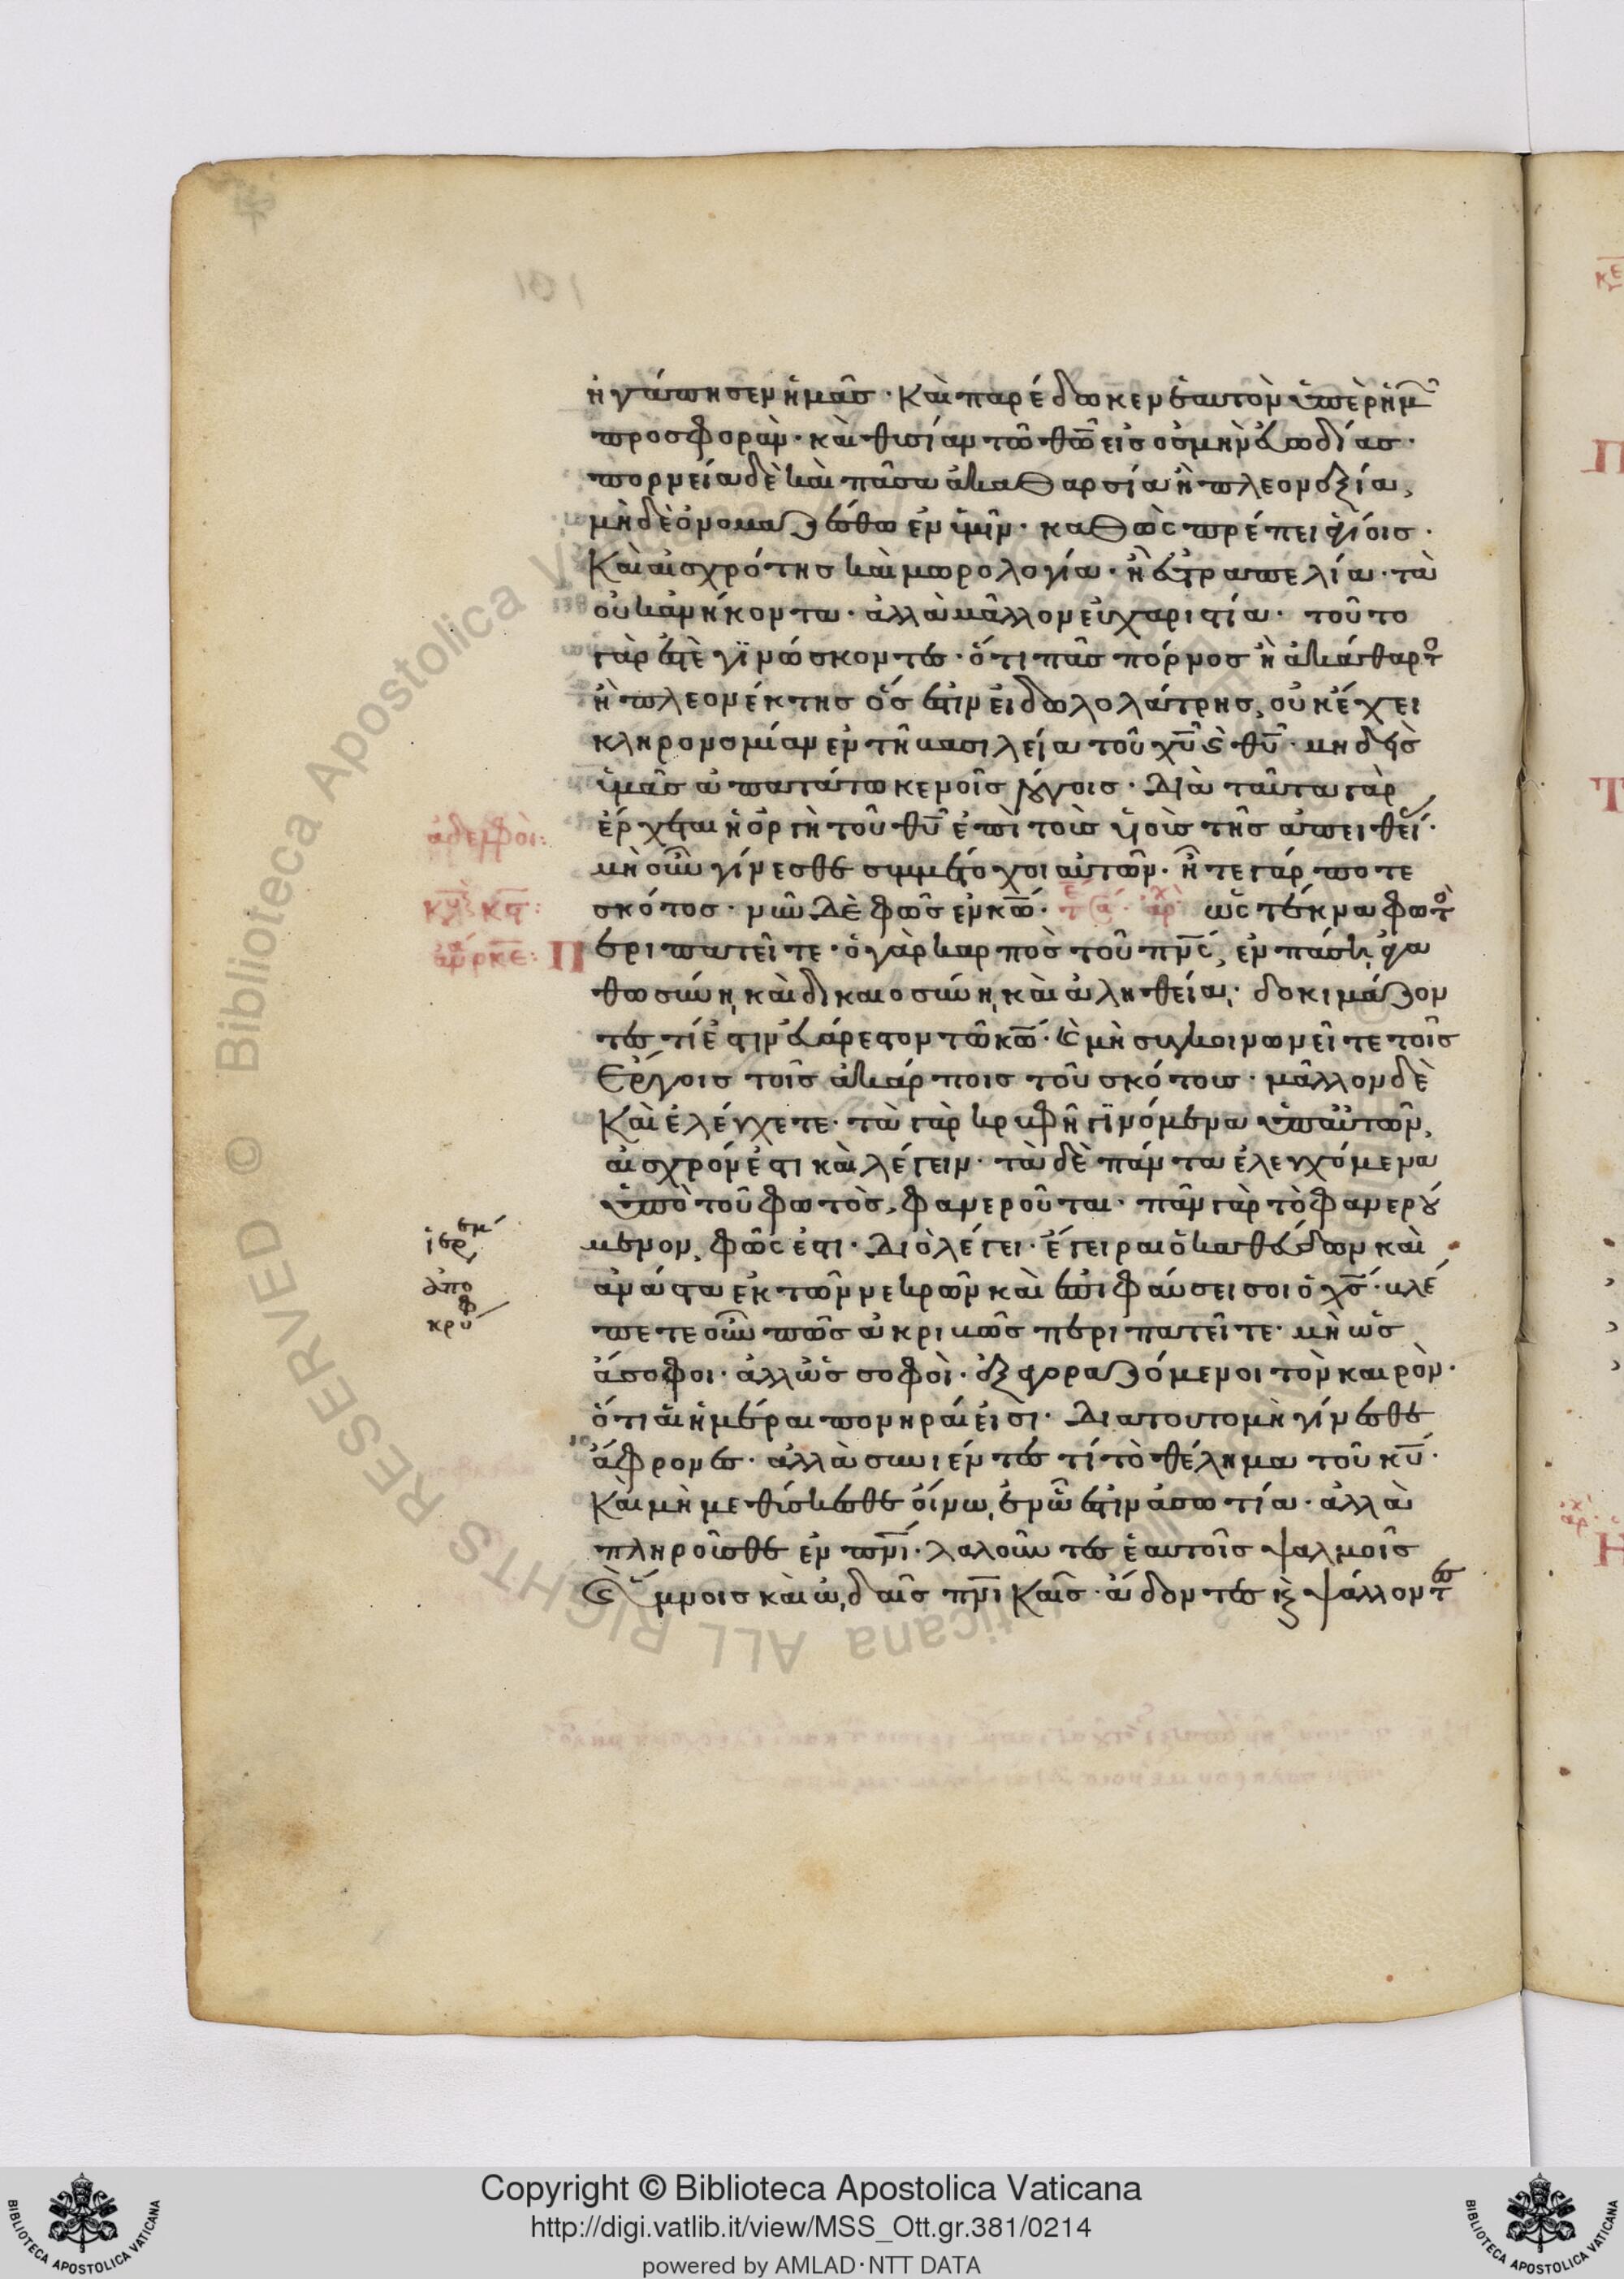 ἠγάπησεν ἡμᾶς· καὶ παρέδωκεν ἑαυτὸν ὑπὲρ ἡμῶ
προσφορὰν· καὶ θυσίαν τῶ θ̅ω̅ εἰς ὀσμὴν εὐωδίας·
πορνεία δὲ καὶ πᾶσα ἀκαθαρσία ἢ πλεονεξία,
μὴ δὲ ὀνομαζέσθω ἐν ὑμῖν· καθὼς πρέπει ἁγίοις·
Καὶ αἰσχρότης καὶ μωρολογία· ἢ εὐτραπελία· τὰ
οὐκ ἀνήκοντα· ἀλλὰ μᾶλλον εὐχαριστία· τοῦτο
γὰρ ἐστὲ γϊνώσκοντες· ὅτι πᾶς πόρνος ἢ ἀκάθαρτο
ἢ πλεονέκτης ὅς ἐστιν εἰδωλολάτρης, οὐκ ἔχει
κληρονομίαν ἐν τῆ βασιλεία τοῦ χ̅υ̅ ϗ θ̅υ̅· μηδεὶς
ὑμᾶς ἀπατάτω κενοῖς λόγοις· Διὰ ταῦτα γὰρ
ἔρχεται ἡ ὀργὴ τοῦ θ̅υ̅ ἐπὶ τοὺς υἱοὺς τῆς ἀπειθεί·
ἀδελφοὶ:
μὴ οὖν γίνεσθε συμμέτοχοι αὐτῶν· ἦτε γάρ ποτε
σκότος· νῦν Δὲ φῶς ἐν κ̅ω̅· ὡς τέκνα φωτὸ
Περιπατεῖτε· ὁ γὰρ καρπὸς τοῦ π̅ν̅ς̅, ἐν πάση ἀγα
θωσύνη, καὶ δικαιοσύνη, καὶ ἀληθεία· δοκιμάζον
τες τί ἐστιν εὐάρεστον τῶ κ̅ω̅· ϗ μὴ συγκοινωνεῖτε τοῖς
ἔργοις τοῖς ἀκάρποις τοῦ σκότους· μᾶλλον δὲ
Καὶ ἐλέγχετε· τὰ γὰρ κρυφῆ γϊνόμενα ὑπ αὐτῶν,
αἰσχρόν ἐστι καὶ λέγειν· τὰ δὲ πάντα ἐλεγχόμενα
ὑπὸ τοῦ φωτὸς, φανεροῦται· πᾶν γὰρ τὸ φανερού
μενον, φῶς ἐστι· Διὸ λέγει· ἔγειραι ὁ καθεύδων καὶ
ἱερεμί
ἀνάστα ἐκ τῶν νεκρῶν καὶ ἐπιφαύσει σοι ὁ χ̅ς̅· βλέ
ἀπο
κρύφ
πετε οὖν πῶς ἀκριβῶς περιπατεῖτε· μὴ ὡς
ἄσοφοι· ἀλλ ὡς σοφοὶ· ἐξαγοραζόμενοι τὸν καιρὸν·
ὅτι αἱ ἡμέραι πονηραί εἰσὶ· Διατουτο μὴ γίνεσθε
ἄφρονες· ἀλλὰ συνιέντες τί τὸ θέλημα τοῦ κ̅υ̅·
Καὶ μὴ μεθύσκεσθε οἴνω, ἐν ὧ ἐστιν ἀσωτία· ἀλλὰ
πληροῦσθε ἐν π̅ν̅ι̅· λαλοῦντες ἑαυτοῖς ψαλμοῖς
ϗ ὕμνοις καὶ ὠδαῖς π̅ν̅ι̅καῖς· ἄδοντες ϗ ψάλλοντες
Copyright © Biblioteca Apostolica Vaticana
http://digi.vatlib.it/view/MSS_Ott.gr.381/0214
powered by AMLAD·NTT DATA
BIBLIOTECA APOSTOLICA VATICANA
BIBLIOTECA APOSTOLICA VATICANA